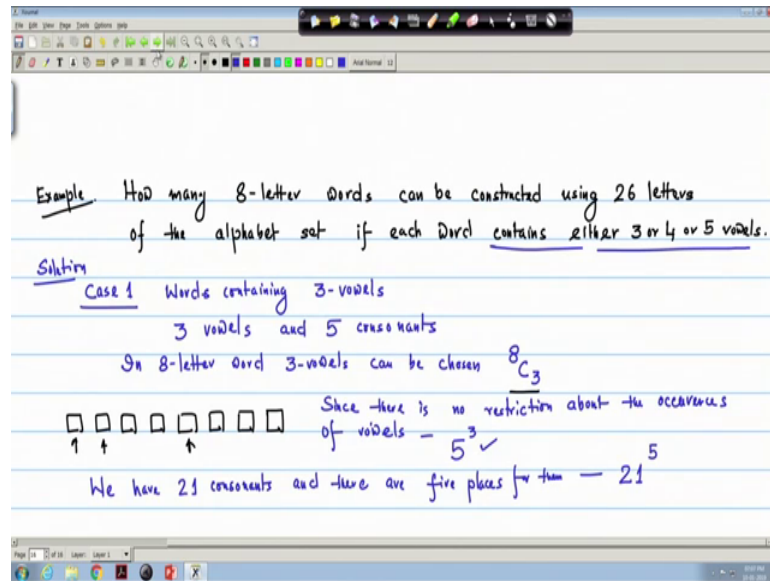 Journal
File Edit View Page Tools Options Help
Arial Normal 12
Example. How many 8-letter words can be constructed using 26 letters
of the alphabet set if each word contains either 3 or 4 or 5 vowels.
Solution
Case 1 Words containing 3-vowels
3 vowels and 5 consonants
In 8-letter word 3-vowels can be chosen ⁸C₃
Since there is no restriction about the occurences
of vowels – 5³ ✓
We have 21 consonants and there are five places for them — 21⁵
Page 16 of 16 Layer: Layer 1